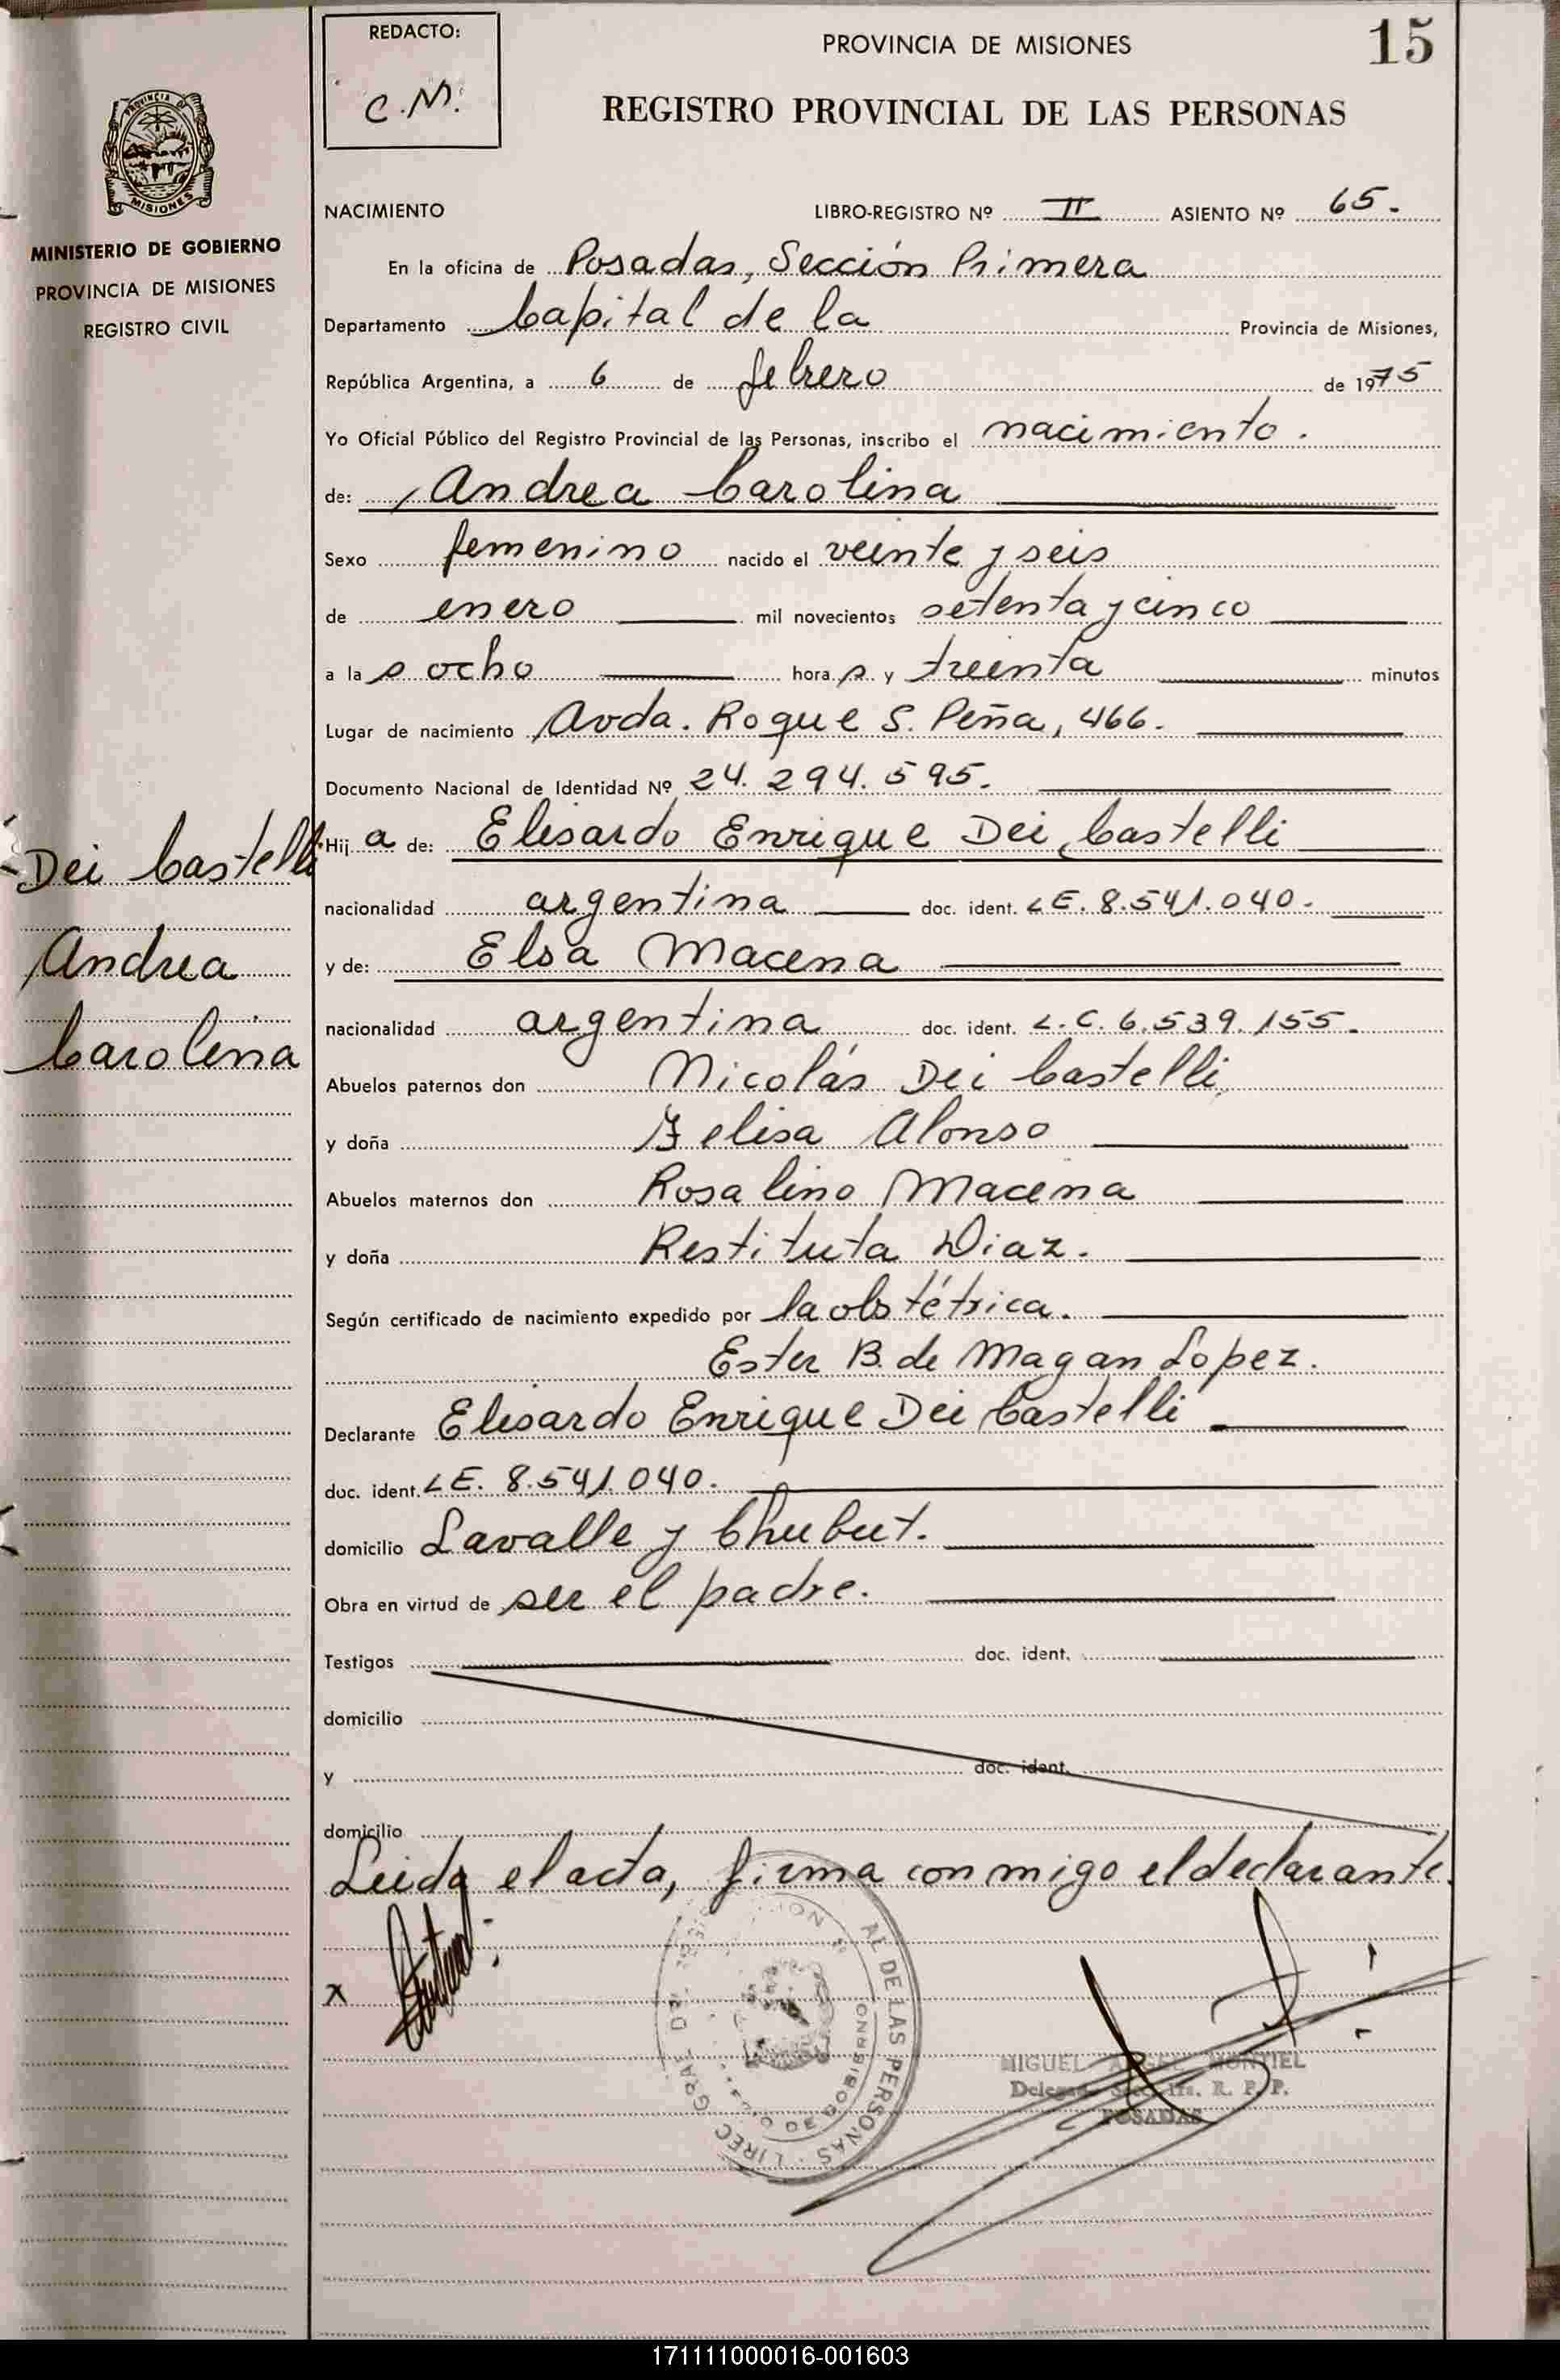 REDACTO:
C.M.
PROVINCIA DE MISIONES
15
REGISTRO PROVINCIAL DE LAS PERSONAS
PROVINCIA DE
MISIONES
MINISTERIO DE GOBIERNO
PROVINCIA DE MISIONES
REGISTRO CIVIL
NACIMIENTO LIBRO-REGISTRO Nº II ASIENTO Nº 65.
En la oficina de Posadas, Sección Primera
Departamento Capital de la Provincia de Misiones,
República Argentina, a 6 de febrero de 1975
Yo Oficial Público del Registro Provincial de las Personas, inscribo el nacimiento.
de: Andrea Carolina
Sexo femenino nacido el veinte y seis
de enero mil novecientos setenta y cinco
a la s ocho hora s y treinta minutos
Lugar de nacimiento Avda. Roque S. Peña, 466.
Documento Nacional de Identidad Nº 24.294.595.
Dei Castelli
Andrea
Carolina
Hij a de: Elisardo Enrique Dei Castelli
nacionalidad argentina doc. ident. LE. 8.541.040.
y de: Elsa Macena
nacionalidad argentina doc. ident. L.C. 6.539.155.
Abuelos paternos don Nicolás Dei Castelli,
y doña Felisa Alonso
Abuelos maternos don Rosalino Macena
y doña Restituta Diaz.
Según certificado de nacimiento expedido por la obstétrica.
Ester B. de Magan Lopez.
Declarante Elisardo Enrique Dei Castelli
doc. ident. LE. 8.541.040.
domicilio Lavalle y Chubut.
Obra en virtud de ser el padre.
Testigos doc. ident.
domicilio
y doc. ident.
domicilio
Leida el acta, firma conmigo el declarante.
x
AL DE LAS PERSONAS
DE GOBIERNO
MIGUEL ANGEL MONTIEL
Delegado Secc. 1ra. R. P. P.
POSADAS
171111000016-001603